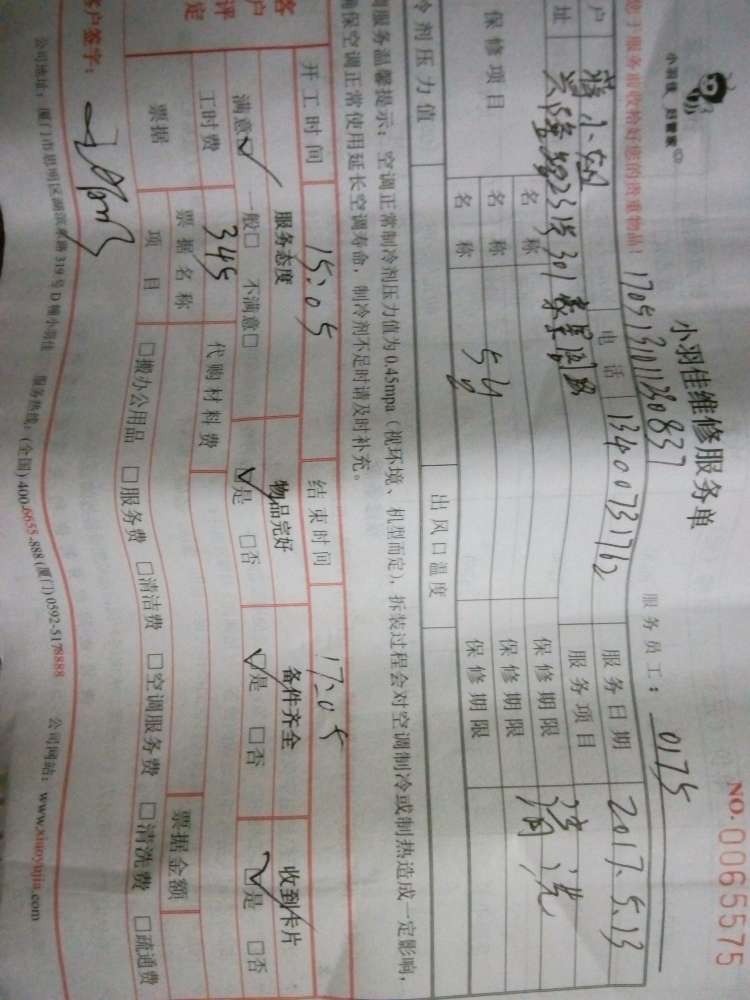 小羽佳 好管家
小羽佳维修服务单
NO. 0065575
您于服务前收拾好您的贵重物品!
17051311230837
服务员工: 0175
户
电话 13400731762
服务日期 2017.5.13
址
兴隆路23号301
服务项目 清洗
保修项目
名称
保修期限
名称
保修期限
名称
保修期限
冷剂压力值
出风口温度
服务温馨提示:空调正常制冷剂压力值为0.45mpa(视环境、机型而定),拆装过程会对空调制冷或制热造成一定影响,
确保空调正常使用延长空调寿命,制冷剂不足时请及时补充。
开工时间 15:05 结束时间 17:05
客户评定
服务态度 物品完好 备件齐全 收到卡片
满意☑ 一般□ 不满意□ ☑是 □否 ☑是 □否 ☑是 □否
工时费 345 代购材料费
票据
票据名称 票据金额
项目 □搬办公用品 □服务费 □清洁费 □空调服务费 □清洗费 □疏通费
客户签字:
公司地址:厦门市思明区湖滨东路319号D幢小羽佳 服务热线:(全国)400-6655-888 (厦门)0592-5178888 公司网站:www.xiaoyujia.com